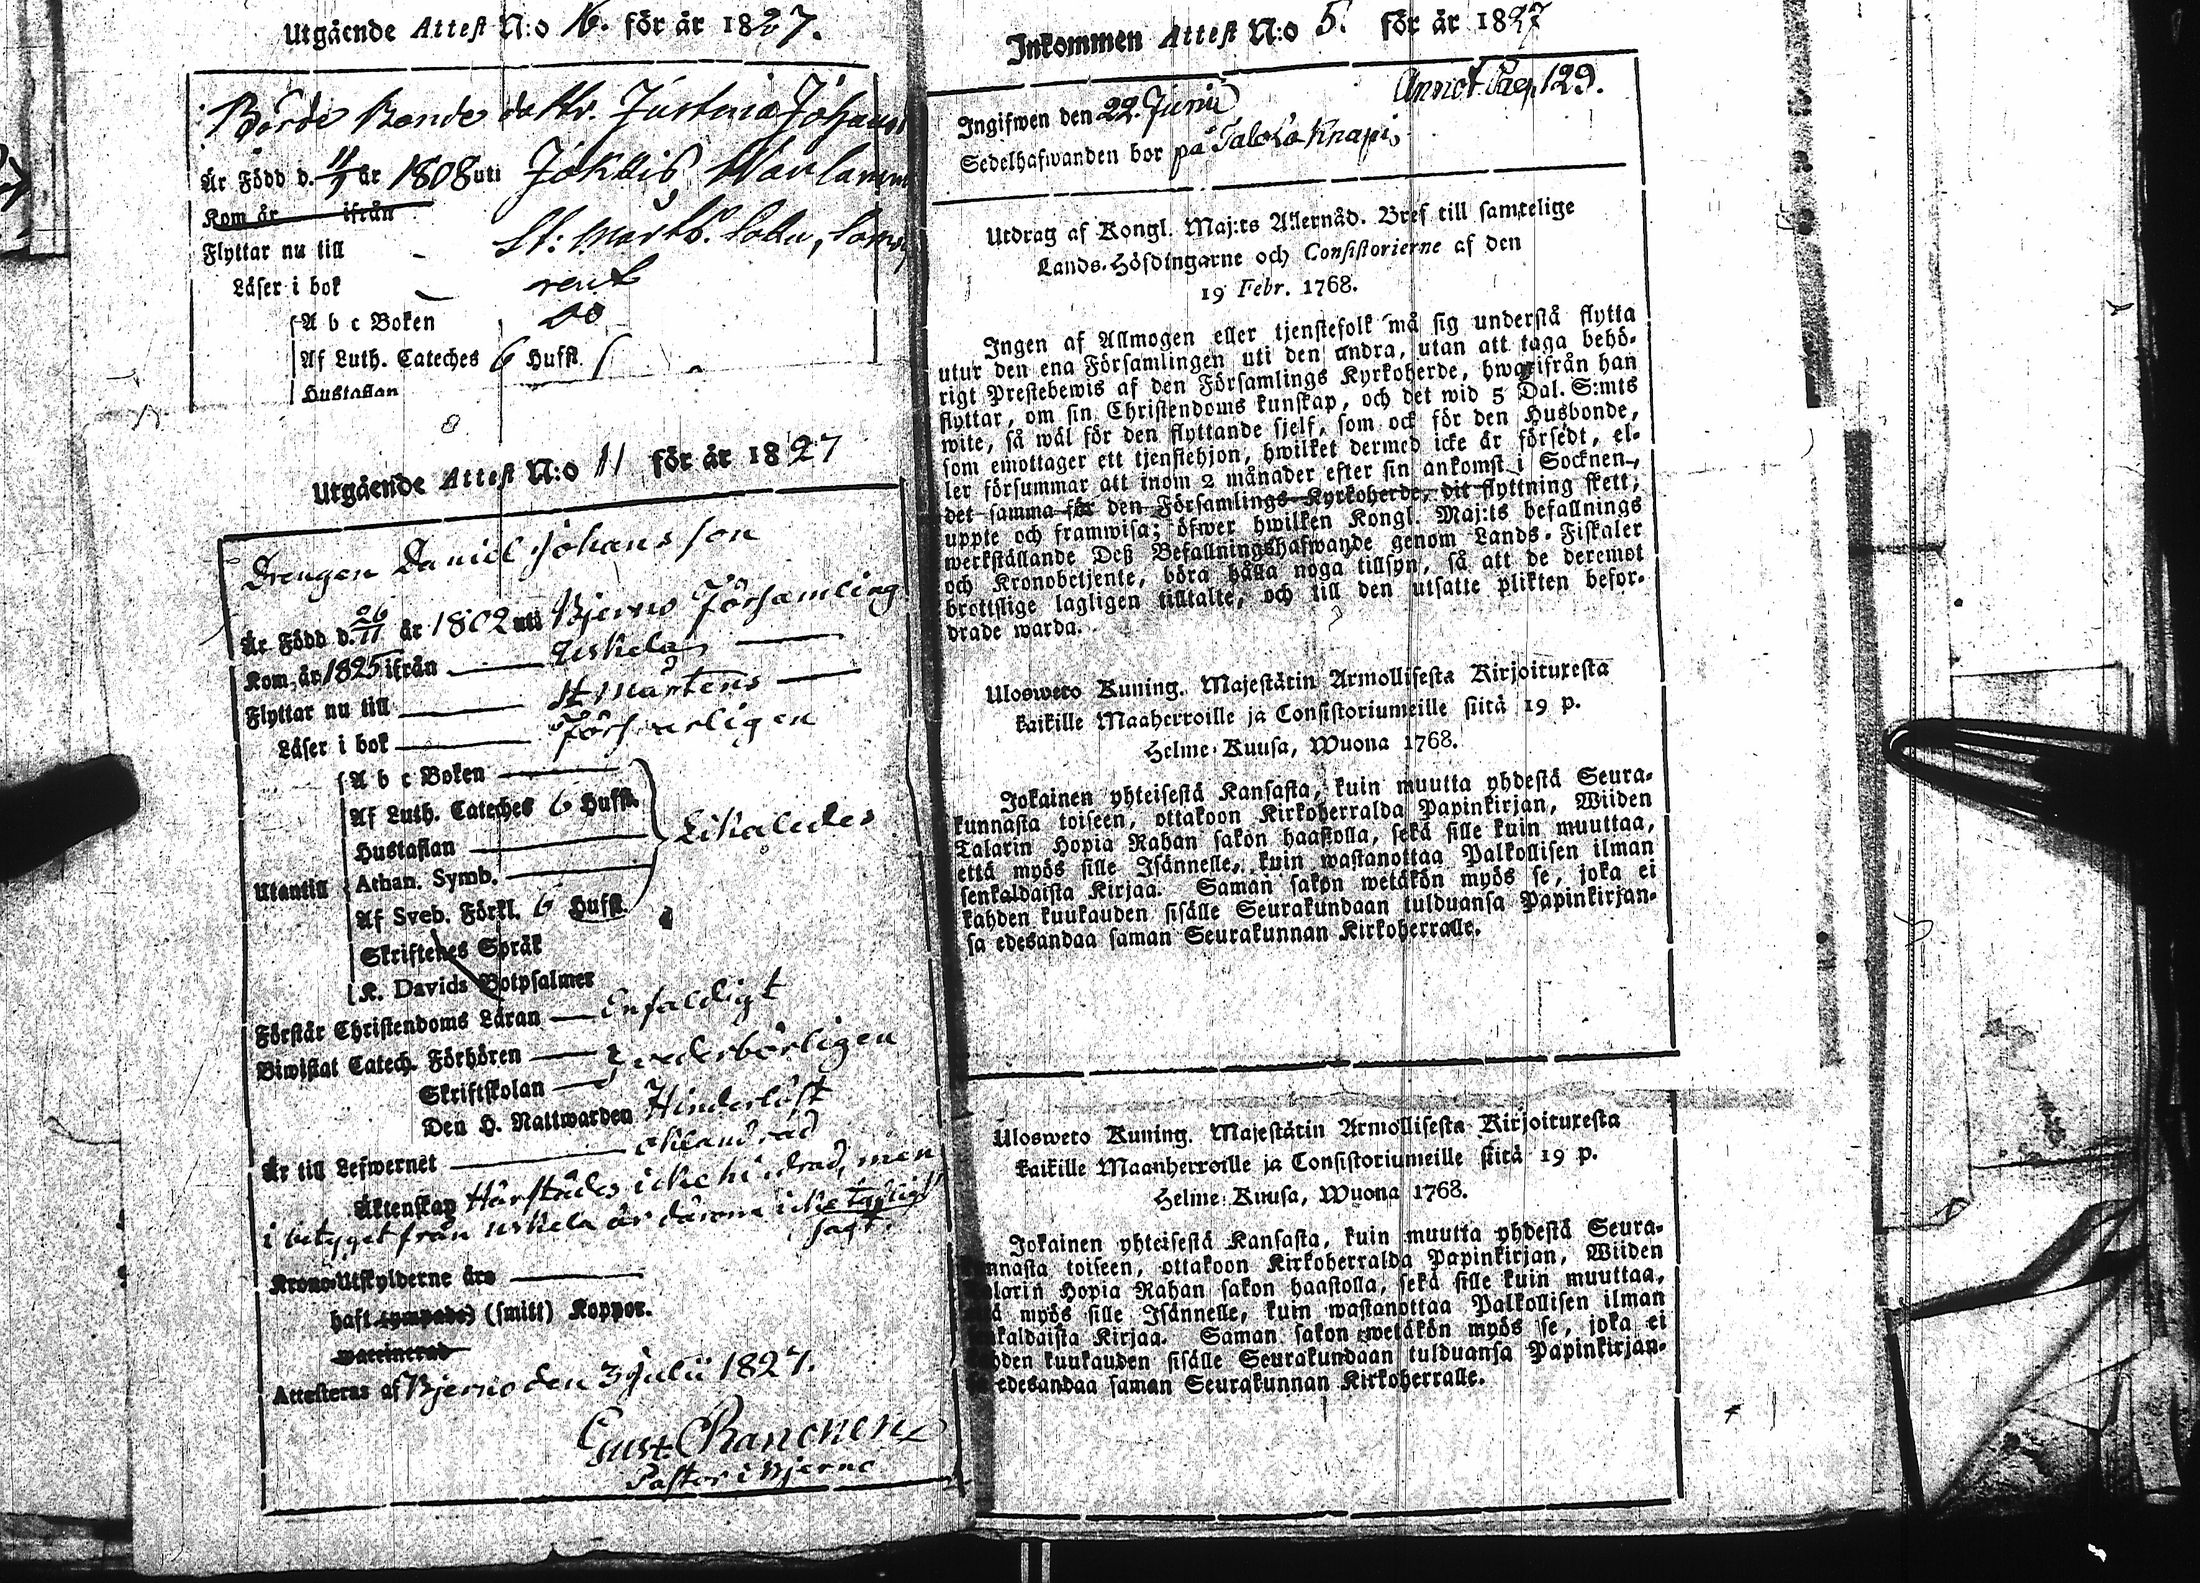 Utgående Attest N:o 16. för år 1827.
Börde Bonde dottr. Justina Johans
Är Född d. 4/7 år 1808 uti Jokkis
Kom år ifrån
Flyttar nu till St: Mårtns.
Läser i bok rent
A b c Boken do
Af Luth. Cateches 6 Hufst.
Hustaflan
Utgående Attest N:o 11 för år 1827
Drengen Daniel Johansson
Är Född d. 26/11 år 1802 uti Bjerno Församling
Kom år 1825 ifrån Uskela
Flyttar nu till St Mårtens
Läser i bok Försvarligen
A b c Boken
Af Luth. Cateches 6 Hufst.
Hustaflan Likaledes
Utantill Athan. Symb.
Af Sveb. Förkl. 6 Hufst.
Skriftenes Språk
K. Davids Botpsalmer
Förstår Christendoms Läran Enfaldigt
Biwistat Catech. Förhören vederbörligen
Skriftskolan
Den H. Nattwarden Hinderlöst
Är till Lefwernet oklandrad
Äktenskap Härstädes icke hindrad, men
i betyget från Uskela är därom icke tydligt
sagt.
Krono-Utskylderne äro
haft (smitt) Koppor.
vaccinerad
Attesteras af Bjerno den 3 Julii 1827.
Gust.
Pastor i Bjerno
Inkommen Attest N:o 5. för år 1827
Annot. Pag. 129.
Ingifwen den 22. Junii
Sedelhafwanden bor på Talola Knapi,
Utdrag af Kongl. Maj:ts Allernåd. Bref till samtelige
Lands-Höfdingarne och Consistorierne af den
19 Febr. 1768.
Ingen af Allmogen eller tjenstefolk må sig understå flytta
utur den ena Församlingen uti den andra, utan att taga behö-
rigt Prestebewis af den Församlings Kyrkoherde, hwarifrån han
flyttar, om sin Christendoms kunskap, och det wid 5 Dal. S:mts
wite, så wäl för den flyttande sjelf, som ock för den Husbonde,
som emottager ett tjenstehjon, hwilket dermed icke är försedt, el-
ler försummar att inom 2 månader efter sin ankomst i Socknen,
det samma för den Församlings Kyrkoherde, dit flyttning skett,
uppte och framwisa; öfwer hwilken Kongl. Maj:ts befallnings
werkställande Deß Befallningshafwande genom Lands-Fiskaler
och Kronobetjente, böra hålla noga tillsyn, så att de deremot
brottslige lagligen tilltalte, och till den utsatte plikten befor-
drade warda.
Ulosweto Kuning. Majestätin Armollisesta Kirjoituxesta
kaikille Maaherroille ja Consistoriumeille siitä 19 p.
Helme-Kuusa, Wuona 1768.
Jokainen yhteisestä Kansasta, kuin muutta yhdestä Seura-
kunnasta toiseen, ottakoon Kirkoherralda Papinkirjan, Wiiden
Talarin Hopia Rahan sakon haastolla, sekä sille kuin muuttaa,
että myös sille Isännelle, kuin wastanottaa Palkollisen ilman
senkaldaista Kirjaa. Saman sakon wetäkön myös se, joka ei
kahden kuukauden sisälle Seurakundaan tulduansa Papinkirjan-
sa edesandaa saman Seurakunnan Kirkoherralle.
Ulosweto Kuning. Majestätin Armollisesta Kirjoituxesta
kaikille Maanherroille ja Consistoriumeille siitä 19 p.
Helme-Kuusa, Wuona 1768.
Jokainen yhteisestä Kansasta, kuin muutta yhdestä Seura-
nnasta toiseen, ottakoon Kirkoherralda Papinkirjan, Wiiden
alarin Hopia Rahan sakon haastolla, sekä sille kuin muuttaa,
ä myös sille Isännelle, kuin wastanottaa Palkollisen ilman
nkaldaista Kirjaa. Saman sakon wetäkön myös se, joka ei
hden kuukauden sisälle Seurakundaan tulduansa Papinkirjan-
edesandaa saman Seurakunnan Kirkoherralle.